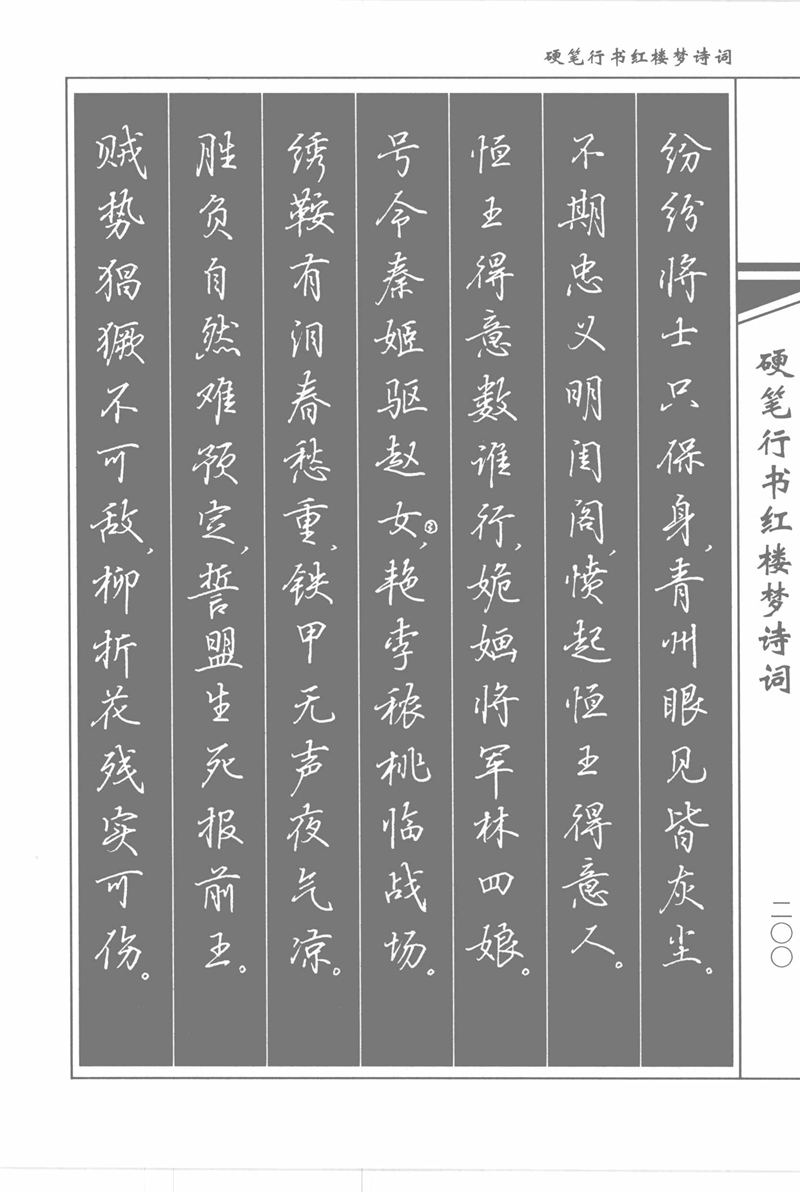 硬笔行书红楼梦诗词
纷纷将士只保身,青州眼见皆灰尘。
不期忠义明闺阁,愤起恒王得意人。
恒王得意数谁行,姽婳将军林四娘。
号令秦姬驱赵女③,艳李秾桃临战场。
绣鞍有泪春愁重,铁甲无声夜气凉。
胜负自然难预定,誓盟生死报前王。
贼势猖獗不可敌,柳折花残实可伤。
硬笔行书红楼梦诗词
二〇〇